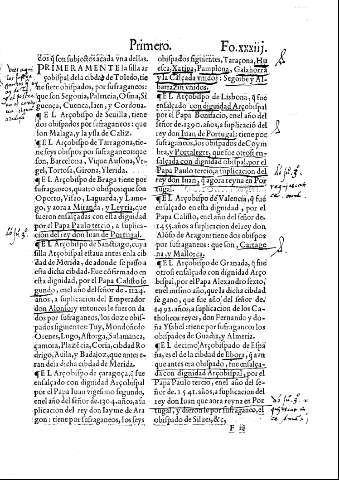 Primero. Fo.xxxiij.
dos q̃ son subjectos a cada vna dellas.
PRIMERAMENTE la silla ar
çobispal dela cibdad de Toledo, tie
ne doze obispos, por sufraganeos:
que son Segouia, Palencia, Osma, Si
guença, Cuenca, Iaen, y Cordoua.
¶EL Arçobispo de Seuilla, tiene
dos obispos por sufraganeos: que
son Malaga, y la ysla de Caliz.
¶EL Arçobispo de Tarragona, tie-
ne seys obispos por sufraganeos que
son, Barcelona, Vique Ausona, Vr-
gel, Tortosa, Girona, Ylerda.
¶EL Arçobispo de Braga tiene por
suffraganeos, quatro obispos que son
Oporto, Viseo, Laguarda, y Lame-
go, y aora a Miranda, y Leyria, que
fueron ensalçadas con esta dignidad
por el Papa Paulo tercio, a suplica
cion del rey don Iuan de Portugal.
¶EL Arçobispo de Santiago, cuya
silla Arçobispal estaua antes enla cib
dad de Merida, de adonde se passo a
esta dicha cibdad. Fue confirmado en
esta dignidad, por el Papa Calisto se
gundo, enel año del señor de .1124.
años, a suplicacion del Emperador
don Alonso y entonces le fueron da
dos por suffraganeos, los doze obis-
pados siguientes: Tuy, Mondoñedo
Orenes, Lugo, Astorga, Salamanca,
çamora, Plazẽcia, Coria, cibdad Ro
drigo, Auila, y Badajoz, que antes e-
ran dela dicha cibdad de Merida.
¶EL Arçobispo de çaragoça, fue
ensalçado con dignidad Arçobispal
por el Papa Iuan vigesimo segundo,
enel año del señor de 1304. años, a su
plicacion del rey don Iayme de Ara
gon: tiene por sufraganeos, los seys
obispados siguientes, Taraçona, Hu
esca, Xatiua, Pamplona, Calahorra
y la Calçada vnidos: Segorbe y Al-
barrazin vnidos.
¶EL Arçobispo de Lisbona, fue
ensalçado con dignidad Arçobispal
por el Papa Bonifacio, enel año del
señor de 1390. años, a suplicació del
rey don Iuan, de Portugal: tiene por
sufraganeos, los obispados de Coym
bra, y Portalegre, que fue otrosi en-
salçada con dignidad obispal, por el
Papa Paulo tercio, a suplicacion del
rey don Iuan, q̃ agora reyna en Por
tugal.
¶EL Arçobispo de Valencia, fue
ensalçado en esta dignidad, por el
Papa Calisto, enel año del señor de
1455. años a suplicacion del rey don
Alõso de Aragon: tiene dos obispos
por sufraganeos: que son, Cartage
na, y Mallorca.
¶EL Arçobispo de Granada, fue
otrosi ensalçado con dignidad Arço
bispal, por el Papa Alexandro sexto,
enel mismo año, que la dicha cibdad
se gano, que fue año del señor de
1492. años, a suplicacion de los Ca-
tholicos reyes, don Fernando y do-
ña Ysabel tiene por suffraganeos los
obispados de Guadix, y Almeria.
¶EL decimo Arçobispado de Espa
ña, es el de la cibdad de Ebora, q̃ aun
que antes era obispado, fue ensalça-
da con dignidad Arçobispal, por el
Papa Paulo tercio, enel año del señor
de 1541. años, a suplicacion del
rey don Iuan que aora reyna en Por
tugal, y dieronle por sufraganeo, el
obispado de Silues, &c,
F iij